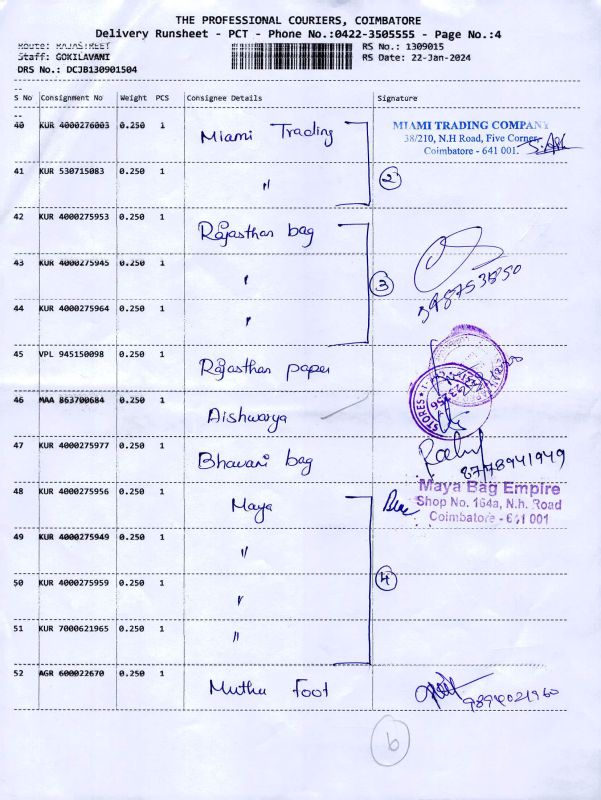 THE PROFESSIONAL COURIERS, COIMBATORE
Delivery Runsheet - PCT - Phone No.:0422-3505555 - Page No.:4
Route: RAJASTREET
Staff: GOKILAVANI
DRS No.: DCJB130901504
RS No.: 1309015
RS Date: 22-Jan-2024
S No Consignment No Weight PCS Consignee Details Signature
40 KUR 4000276003 0.250 1 Miami Trading
MIAMI TRADING COMPANY
38/210, N.H Road, Five Corner,
Coimbatore - 641 001.
41 KUR 530715083 0.250 1 〃 2
42 KUR 4000275953 0.250 1 Rajasthan bag
43 KUR 4000275945 0.250 1 〃 3
44 KUR 4000275964 0.250 1 〃
45 VPL 945150098 0.250 1 Rajasthan paper
46 MAA 863700684 0.250 1 Aishwarya
STORES
47 KUR 4000275977 0.250 1 Bhavani bag
8778941949
48 KUR 4000275956 0.250 1 Maya
Maya Bag Empire
Shop No. 164a, N.h. Road
Coimbatore - 641 001
49 KUR 4000275949 0.250 1 〃
50 KUR 4000275959 0.250 1 〃 4
51 KUR 7000621965 0.250 1 〃
52 AGR 600022670 0.250 1 Muthu Foot
9894021960
6